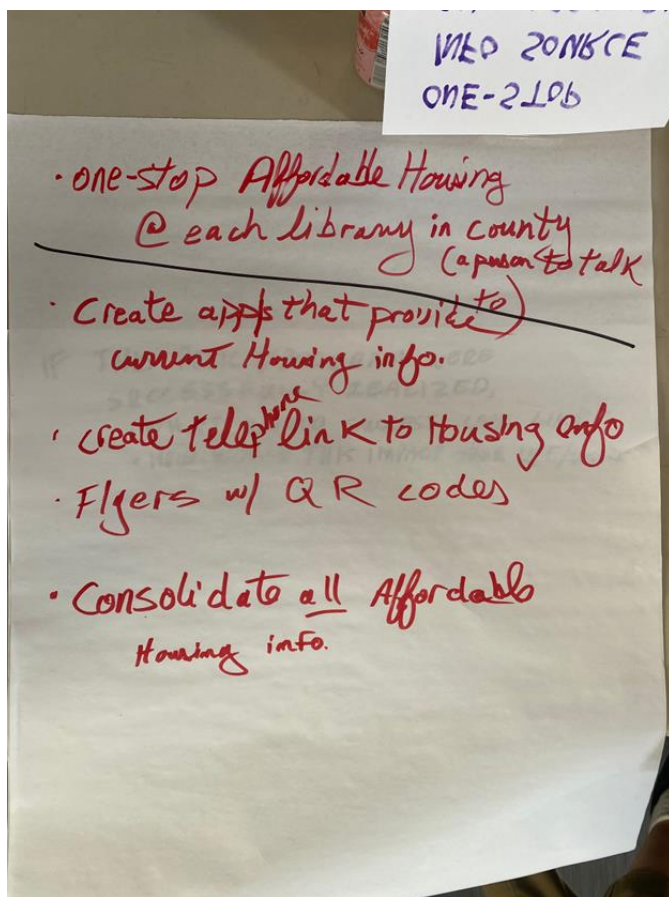 ONE-STOP
INFO SOURCE
• one-stop Affordable Housing
@ each library in county
(a person to talk
to)
• Create apps that provide
current Housing info.
• create telephone link to Housing Info
• Flyers w/ QR codes
• Consolidate all Affordable
Housing info.
IF
SUCCESSFULLY REALIZED,